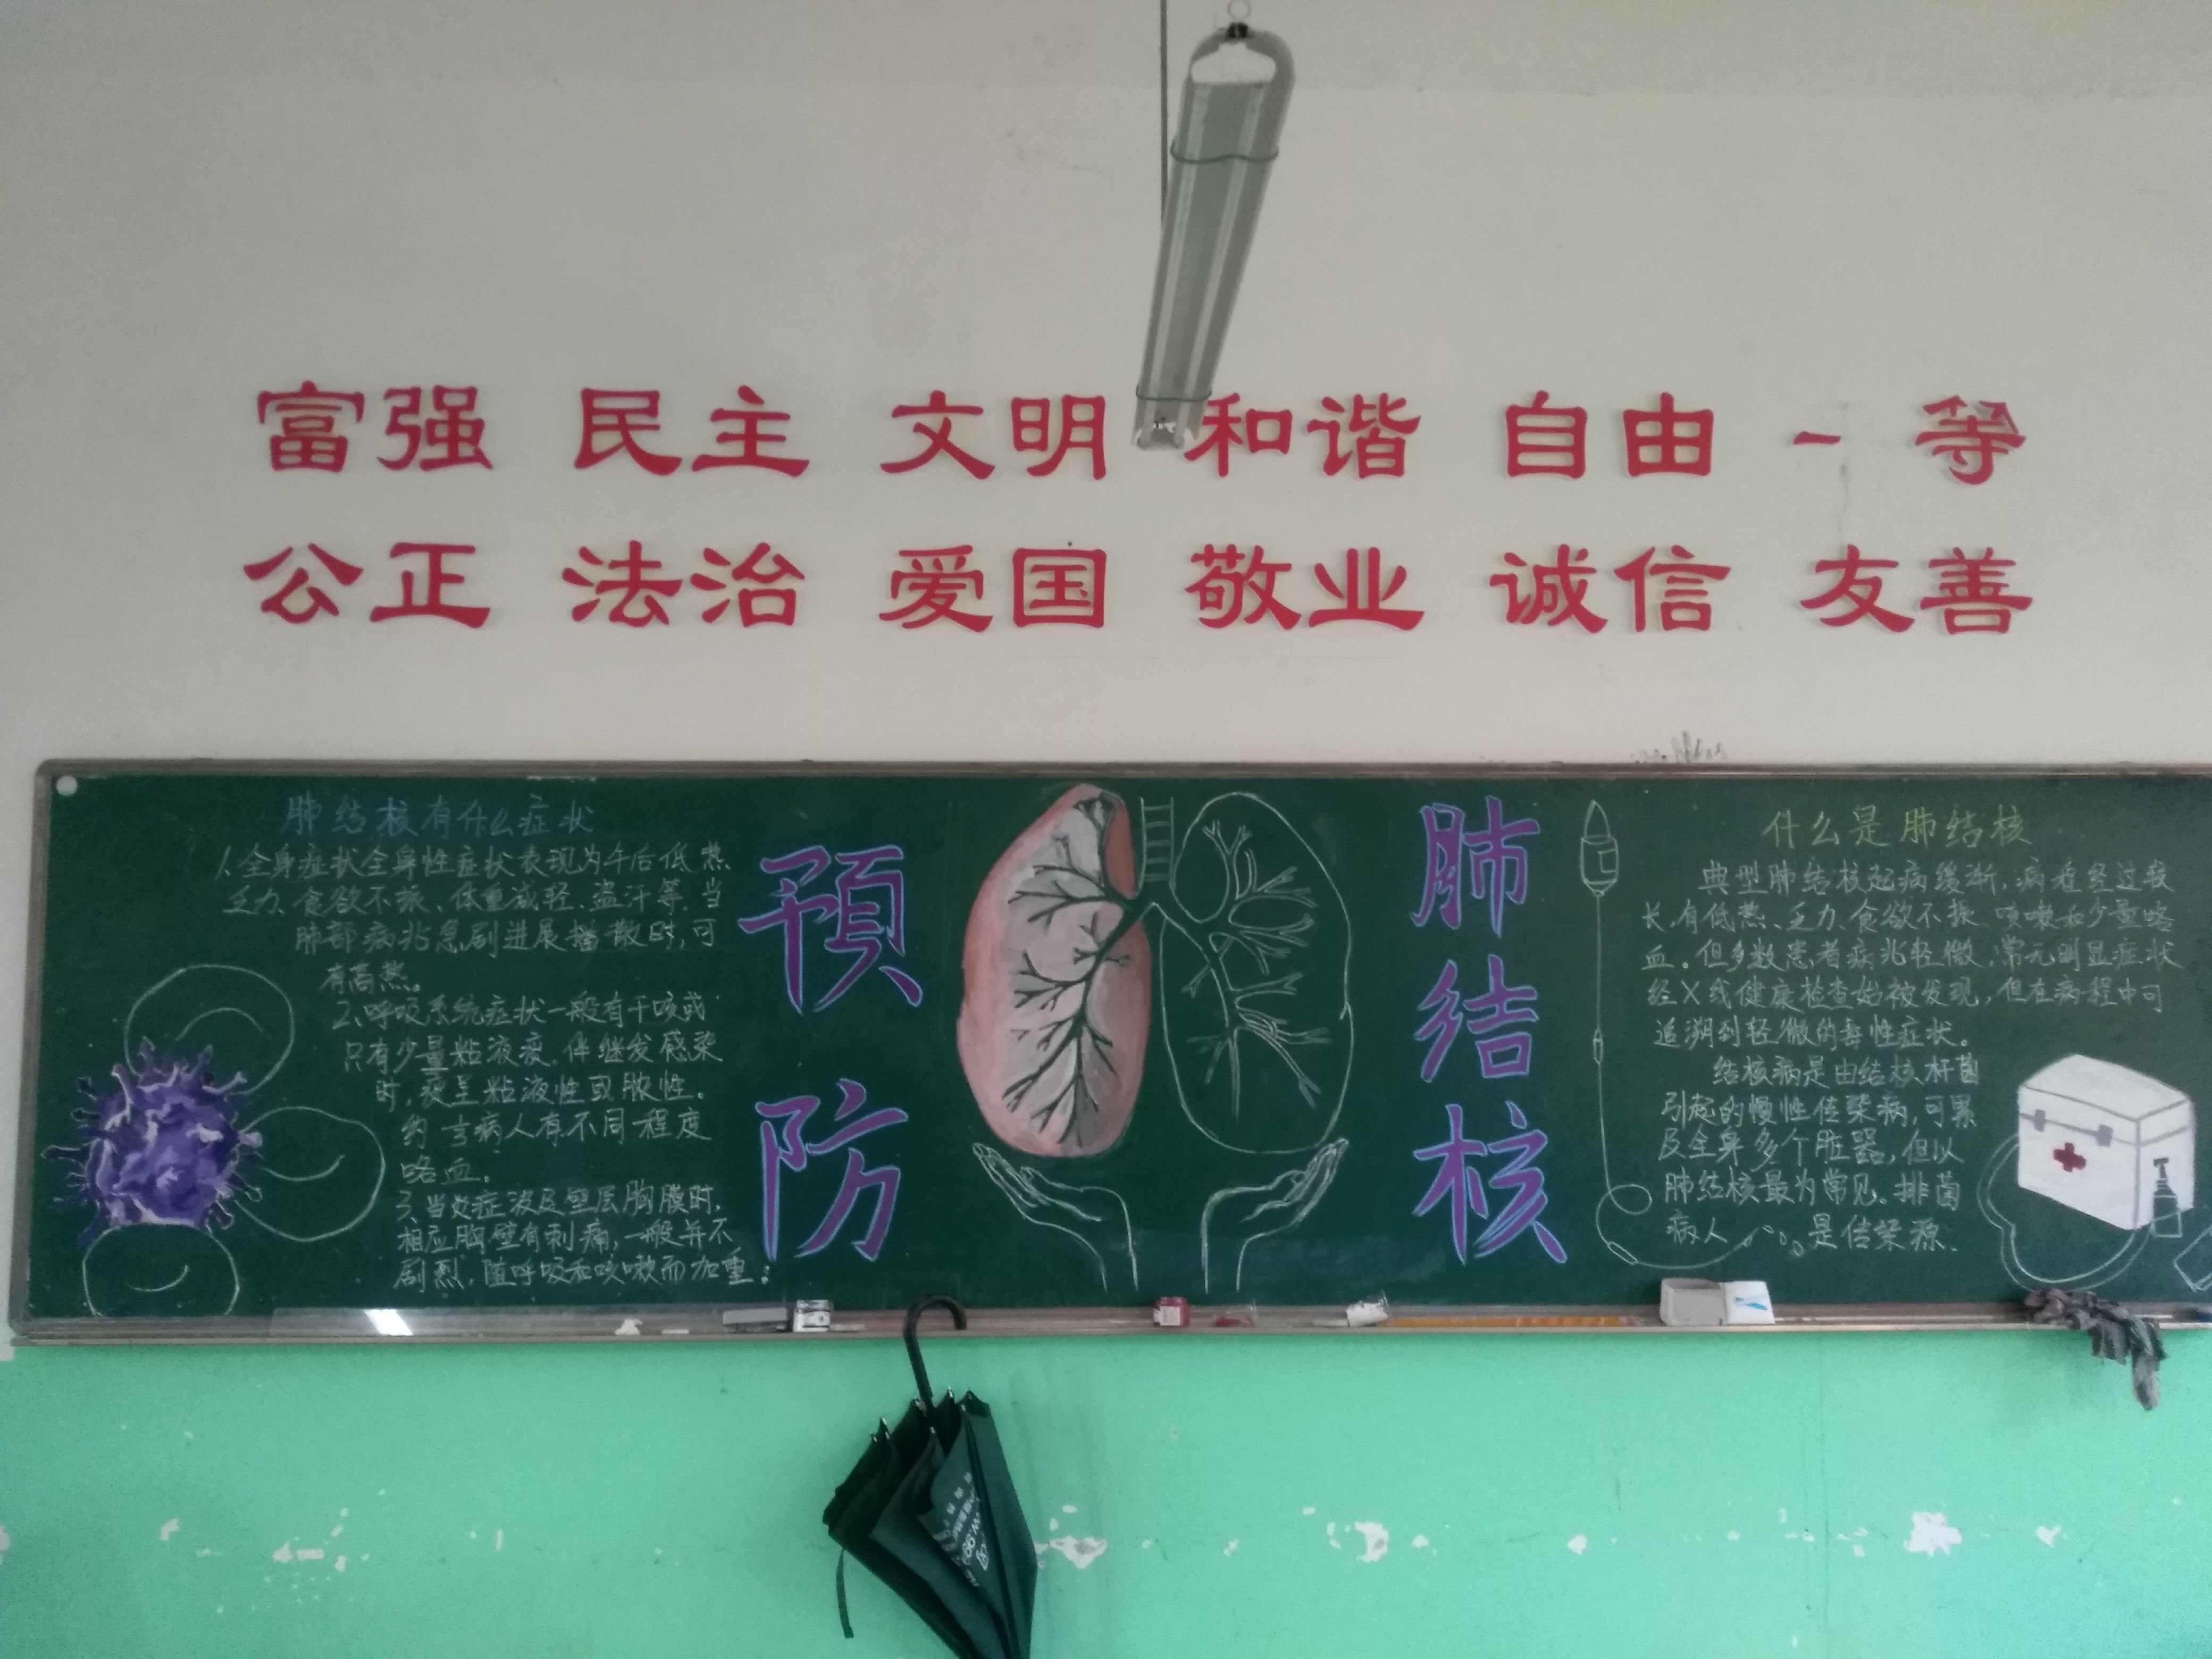 富强 民主 文明 和谐 自由 一 等
公正 法治 爱国 敬业 诚信 友善
肺结核有什么症状
1、全身症状全身性症状表现为午后低热
乏力、食欲不振、体重减轻、盗汗等.当
肺部病兆急剧进展播散时,可
有高热。
2、呼吸系统症状一般有干咳或
只有少量粘液痰.伴继发感染
时,痰呈粘液性或脓性。
约 病人有不同程度
咯血。
3、当炎症波及壁层胸膜时,
相应胸壁有刺痛,一般并不
剧烈,随呼吸和咳嗽而加重;
预
防
肺
结
核
什么是肺结核
典型肺结核起病缓渐,病程经过较
长,有低热、乏力、食欲不振、咳嗽和少量咯
血。但多数患者病兆轻微,常无明显症状
经X线健康检查始被发现,但在病程中可
追溯到轻微的毒性症状。
结核病是由结核杆菌
引起的慢性传染病,可累
及全身多个脏器,但以
肺结核最为常见。排菌
病人 是传染源.